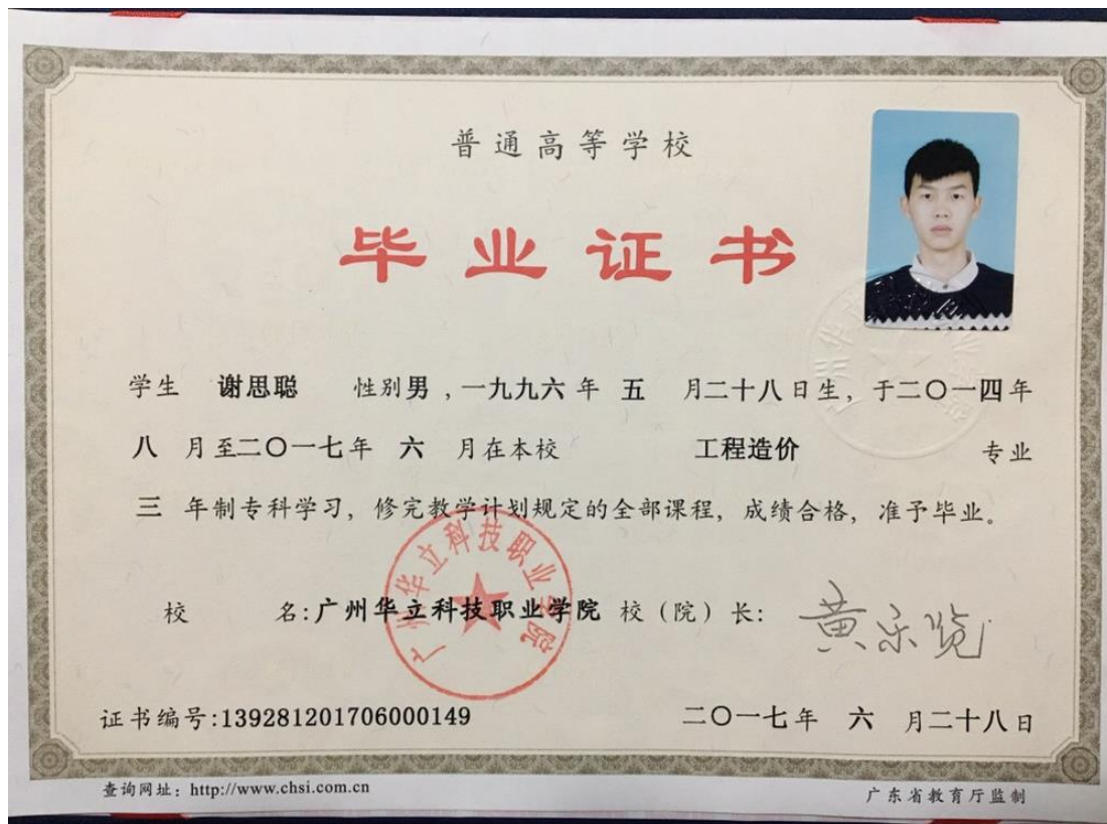 普通高等学校
毕业证书
学生 谢思聪 性别男,一九九六年 五 月二十八日生，于二〇一四年
八 月至二〇一七年 六 月在本校 工程造价 专业
三 年制专科学习，修完教学计划规定的全部课程，成绩合格，准予毕业。
校 名:广州华立科技职业学院 校（院）长:
广州华立科技职业学院
证书编号:139281201706000149 二〇一七年 六 月二十八日
查询网址：http://www.chsi.com.cn 广东省教育厅监制